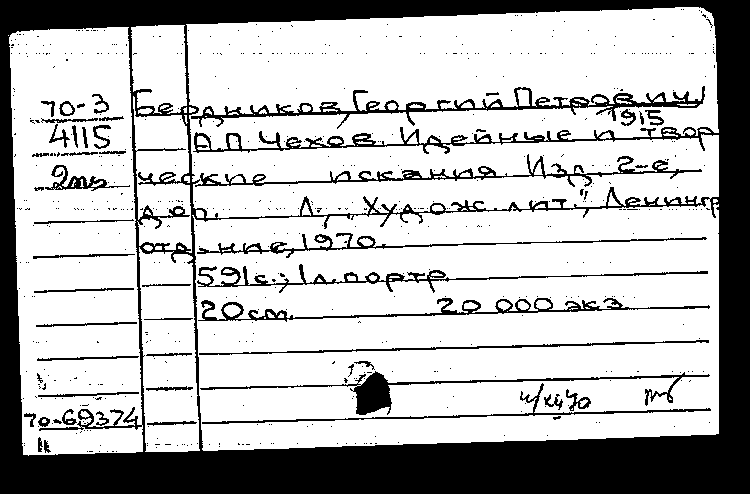 70-3 Бердников, Георгий Петрович,
1915
4115 А.П. Чехов. Идейные и твор
2 ческие искания. Изд. 2-е,
доп. Л., "Худож. лит.", Ленингр
отд-ние, 1970.
591с.; 1л.портр
20см. 20 000 экз
70-69374